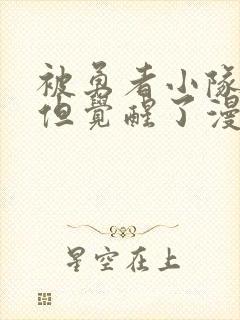 被勇者小隊
但覺醒了漫
星空在上